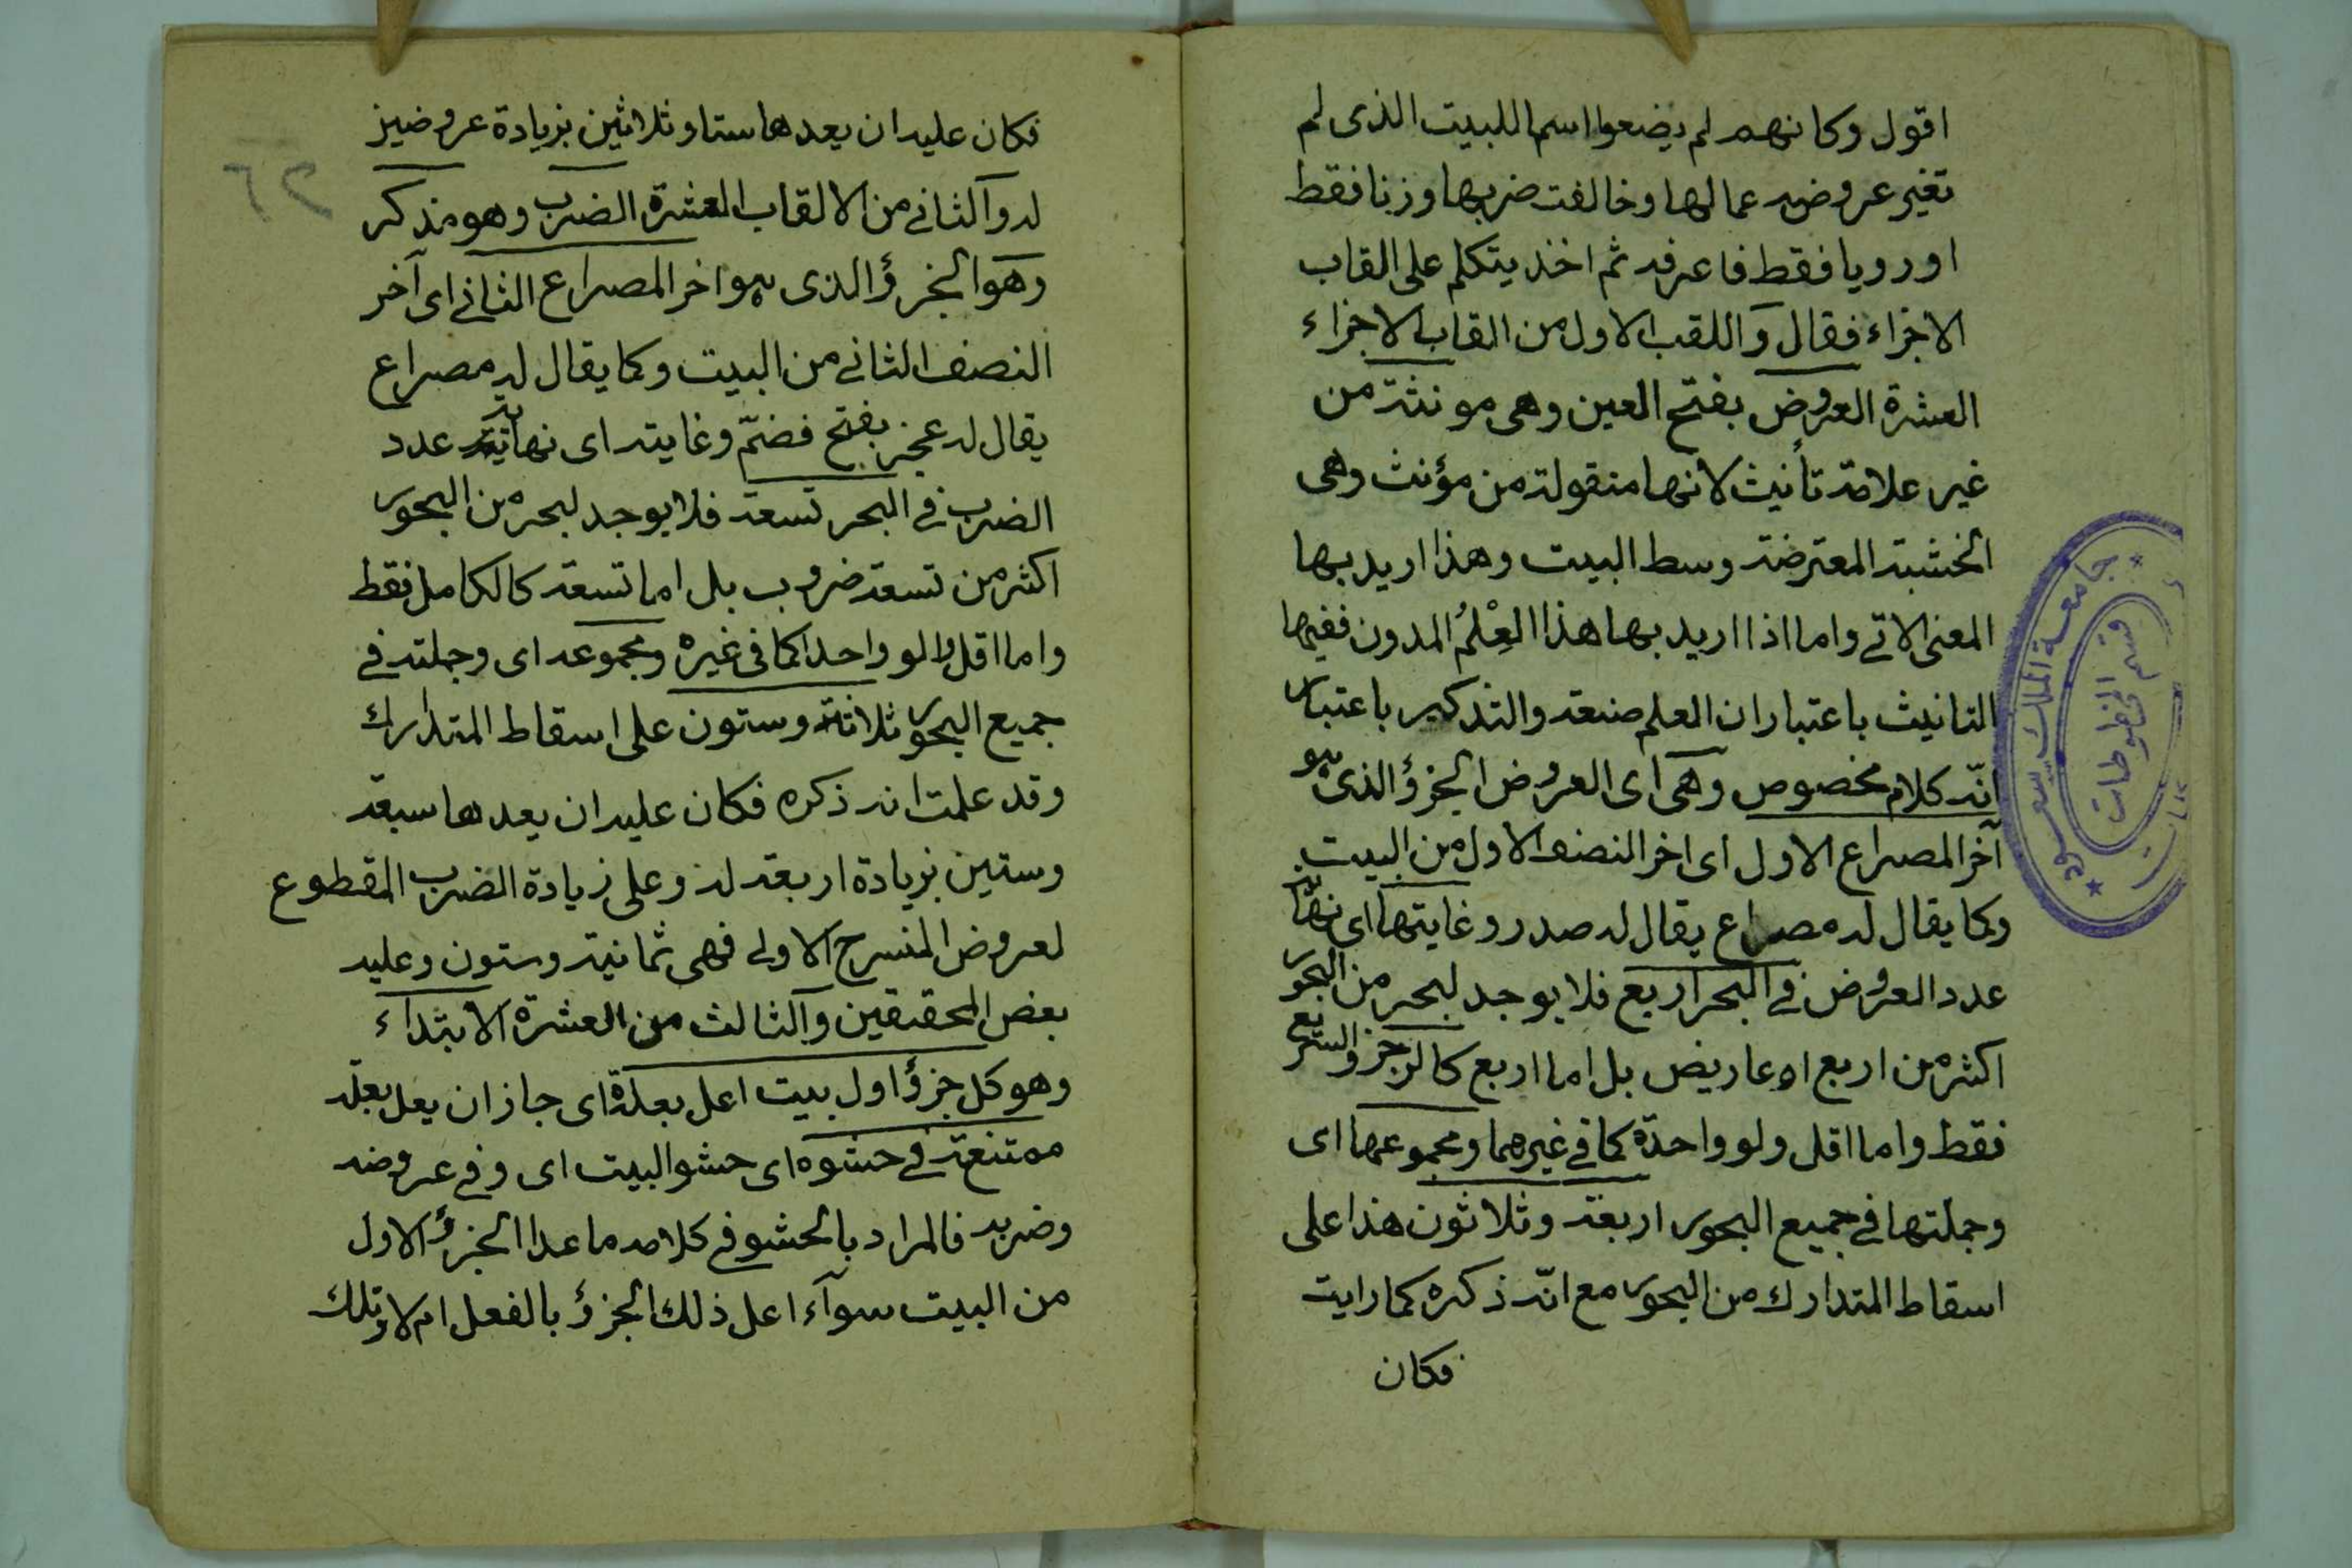 اقول وكانهم لم يضعوا اسما للبيت الذى لم
تغير عروضه عمالها وخالفت ضربها وزنا فقط
او رويا فقط فاعرفه ثم اخذ يتكلم على القاب
الاجزاء فقال واللقب الاول من القاب الاجزاء
العشرة العروض بفتح العين وهى مونثة من
غير علامة تأنيث لانها منقولة من مؤنث وهى
الخشبة المعترضة وسط البيت وهذا اريد بها
المعنى الاتى واما اذا اريد بها هذا العِلْمُ المدون ففيها
التانيث باعتبار ان العلم صنعة والتذكير باعتبار
انّه كلام مخصوص وهى اى العروض الجزؤ الذى هو
آخر المصراع الاول اى اخر النصف الاول من البيت
وكما يقال له مصراع يقال له صدر وغايتها اى نهاية
عدد العروض فى البحر اربع فلا يوجد لبحر من البحور
اكثر من اربع اعاريض بل اما اربع كالرجز والسريع
فقط واما اقل ولو واحدة كما فى غيرهما ومجموعها اى
وجملتها فى جميع البحور اربعة وثلاثون هذا على
اسقاط المتدارك من البحور مع انّه ذكره كما رايت
فكان
٢٦
فكان عليه ان يعدها ستا وثلاثين بزيادة عروضين
له والثانى من الالقاب العشرة الضرب وهو مذكر
وهو الجزؤ الذى هو اخر المصراع الثانى اى آخر
النصف الثانى من البيت وكما يقال له مصراع
يقال له عجز بفتح فضمّ وغايته اى نهاية عدد
الضرب فى البحر تسعة فلا يوجد لبحر من البحور
اكثر من تسعة ضروب بل اما تسعة كالكامل فقط
واما اقل ولو واحدا كما فى غيره ومجموعه اى وجملته فى
جميع البحور ثلاثة وستون على اسقاط المتدارك
وقد علمت انه ذكره فكان عليه ان يعدها سبعة
وستين بزيادة اربعة له وعلى زيادة الضرب المقطوع
لعروض المنسرح الاولى فهى ثمانية وستون وعليه
بعض المحققين والثالث من العشرة الابتداء
وهو كل جزؤ اول بيت اعل بعلة اى جاز ان يعل بعلة
ممتنعة فى حشوه اى حشو البيت اى وفى عروضه
وضربه فالمراد بالحشو فى كلامه ما عدا الجزؤ الاول
من البيت سوآء اعل ذلك الجزؤ بالفعل ام لا وتلك
جامعة الملك سعود
قسم المخطوطات